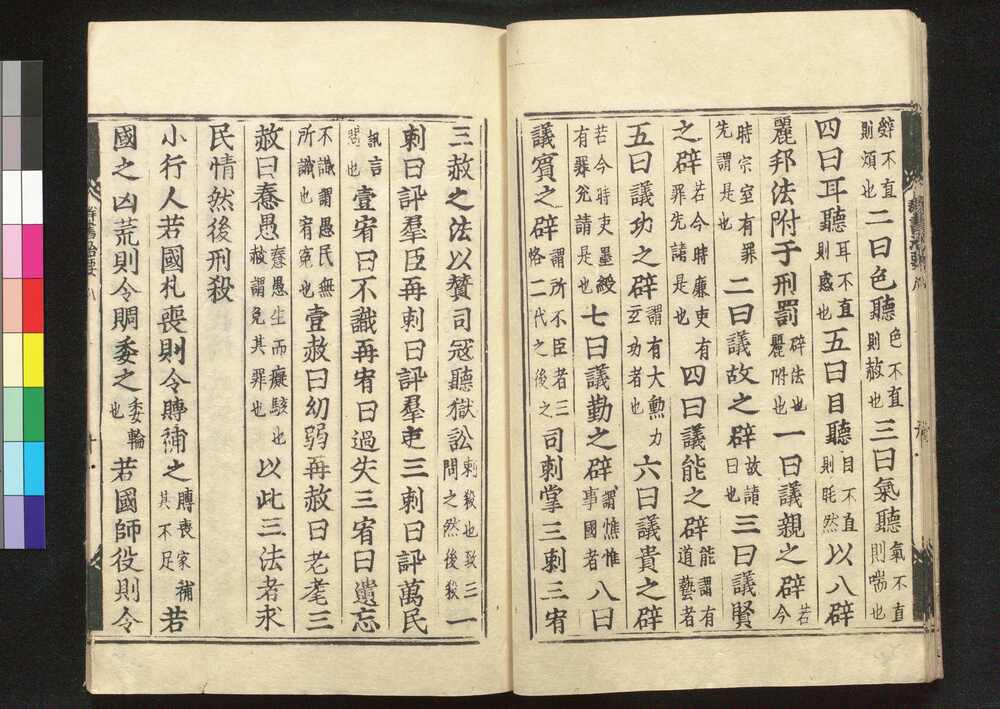 辭不直則煩也二曰色聽色不直則赦也三曰氣聽氣不直則喘也
四曰耳聽耳不直則惑也五曰目聽目不直則眊然以八辟
麗邦法附于刑罰辟法也麗附也一曰議親之辟若今
時宗室有罪先謂是也二曰議故之辟故謂曰也三曰議賢
之辟若今時廉吏有罪先請是也四曰議能之辟能謂有道藝者
五曰議功之辟謂有大勳力立功者也六曰議貴之辟
若今時吏墨綬有罪先請是也七曰議勤之辟謂憔悴事國者八曰
議賓之辟謂所不臣者三恪二代之後之司刺掌三刺三宥
三赦之法以贊司寇聽獄訟刺殺也致三問之然後殺一
刺曰訊羣臣再刺曰訊羣吏三刺曰訊萬民
訊言也壹宥曰不識再宥曰過失三宥曰遺忘
不識謂愚民無所識也宥寬也壹赦曰幼弱再赦曰老耄三
赦曰惷愚惷愚生而癡騃也赦謂免其罪也以此三法者求
民情然後刑殺
小行人若國札喪則令賻補之賻喪家補其不足若
國之凶荒則令賙委之委輸也若國師役則令